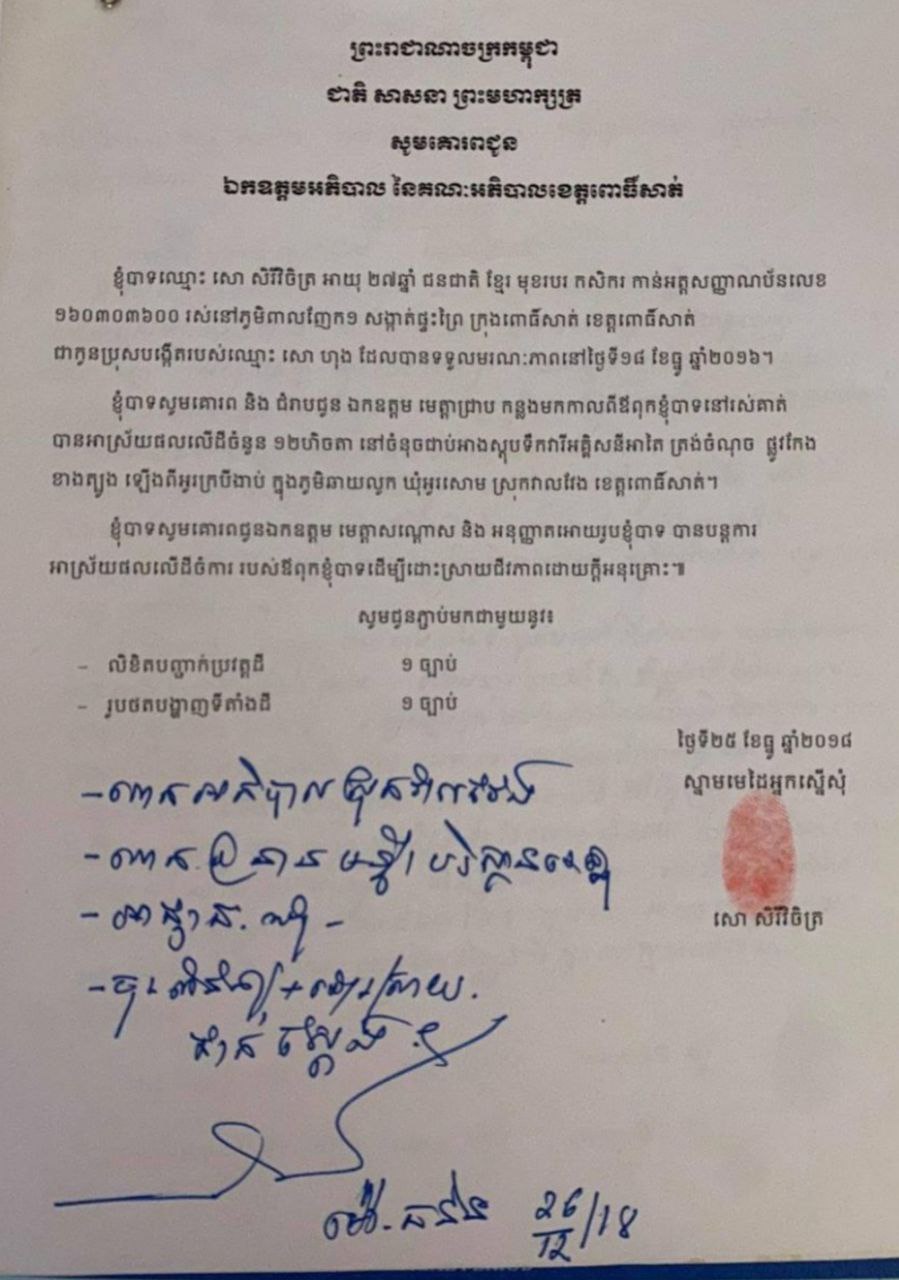 ព្រះរាជាណាចក្រកម្ពុជា
ជាតិ សាសនា ព្រះមហាក្សត្រ
សូមគោរពជូន
ឯកឧត្តមអភិបាល នៃគណៈអភិបាលខេត្តពោធិ៍សាត់
ខ្ញុំបាទឈ្មោះ សោ សិរីវិចិត្រ អាយុ ២៧ឆ្នាំ ជនជាតិ ខ្មែរ មុខរបរ កសិករ កាន់អត្តសញ្ញាណប័នលេខ
១៦០៣០៣៦០០ រស់នៅភូមិពាលញែក១ សង្កាត់ផ្ទះព្រៃ ក្រុងពោធិ៍សាត់ ខេត្តពោធិ៍សាត់
ជាកូនប្រុសបង្កើតរបស់ឈ្មោះ សោ ហុង ដែលបានទទួលមរណៈភាពនៅថ្ងៃទី១៨ ខែធ្នូ ឆ្នាំ២០១៦។
ខ្ញុំបាទសូមគោរព និង ជំរាបជូន ឯកឧត្តម មេត្តាជ្រាប កន្លងមកកាលពីឪពុកខ្ញុំបាទនៅរស់គាត់
បានអាស្រ័យផលលើដីចំនួន ១២ហិចតា នៅចំនុចជាប់អាងស្តុបទឹកវារីអគ្គិសនីអាតៃ ត្រង់ចំណុច ផ្លូវកែង
ខាងត្បូង ឡើងពីអូរក្របីងាប់ ក្នុងភូមិឆាយលូក ឃុំអូរសោម ស្រុកវាលវែង ខេត្តពោធិ៍សាត់។
ខ្ញុំបាទសូមគោរពជូនឯកឧត្តម មេត្តាសណ្តោស និង អនុញ្ញាតអោយរូបខ្ញុំបាទ បានបន្តការ
អាស្រ័យផលលើដីចំការ របស់ឪពុកខ្ញុំបាទដើម្បីដោះស្រាយជីវភាពដោយក្តីអនុគ្រោះ៕
សូមជូនភ្ជាប់មកជាមួយនូវ៖
- លិខិតបញ្ជាក់ប្រវត្តដី ១ ច្បាប់
- រូបថតបង្ហាញទីតាំងដី ១ ច្បាប់
ថ្ងៃទី២៥ ខែធ្នូ ឆ្នាំ២០១៨
ស្នាមមេដៃអ្នកស្នើសុំ
សោ សិរីវិចិត្រ
26/12/18